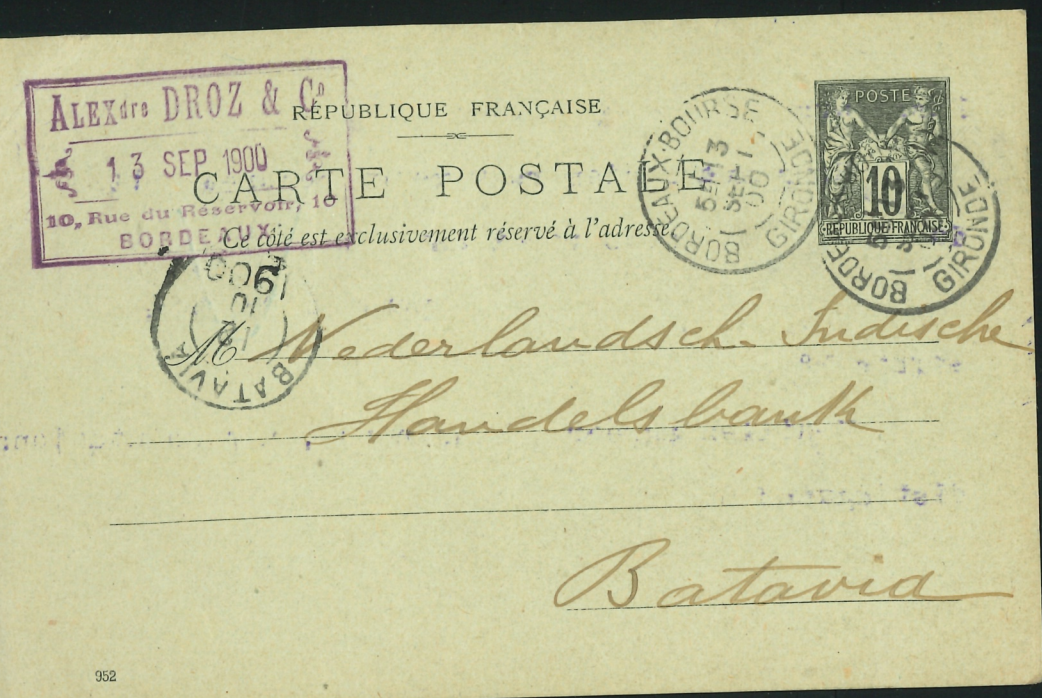 ALEXdre DROZ & Co
13 SEP 1900
10, Rue du Réservoir, 10
BORDEAUX
RÉPUBLIQUE FRANÇAISE
CARTE POSTALE
Ce côté est exclusivement réservé à l'adresse.
BORDEAUX-BOURSE
13
SEPT
00
GIRONDE
POSTES
10
RÉPUBLIQUE FRANÇAISE
BORDE
GIRONDE
1900
10
BATAVIA
M Nederlandsch. Indische
Handelsbank
Batavia
952